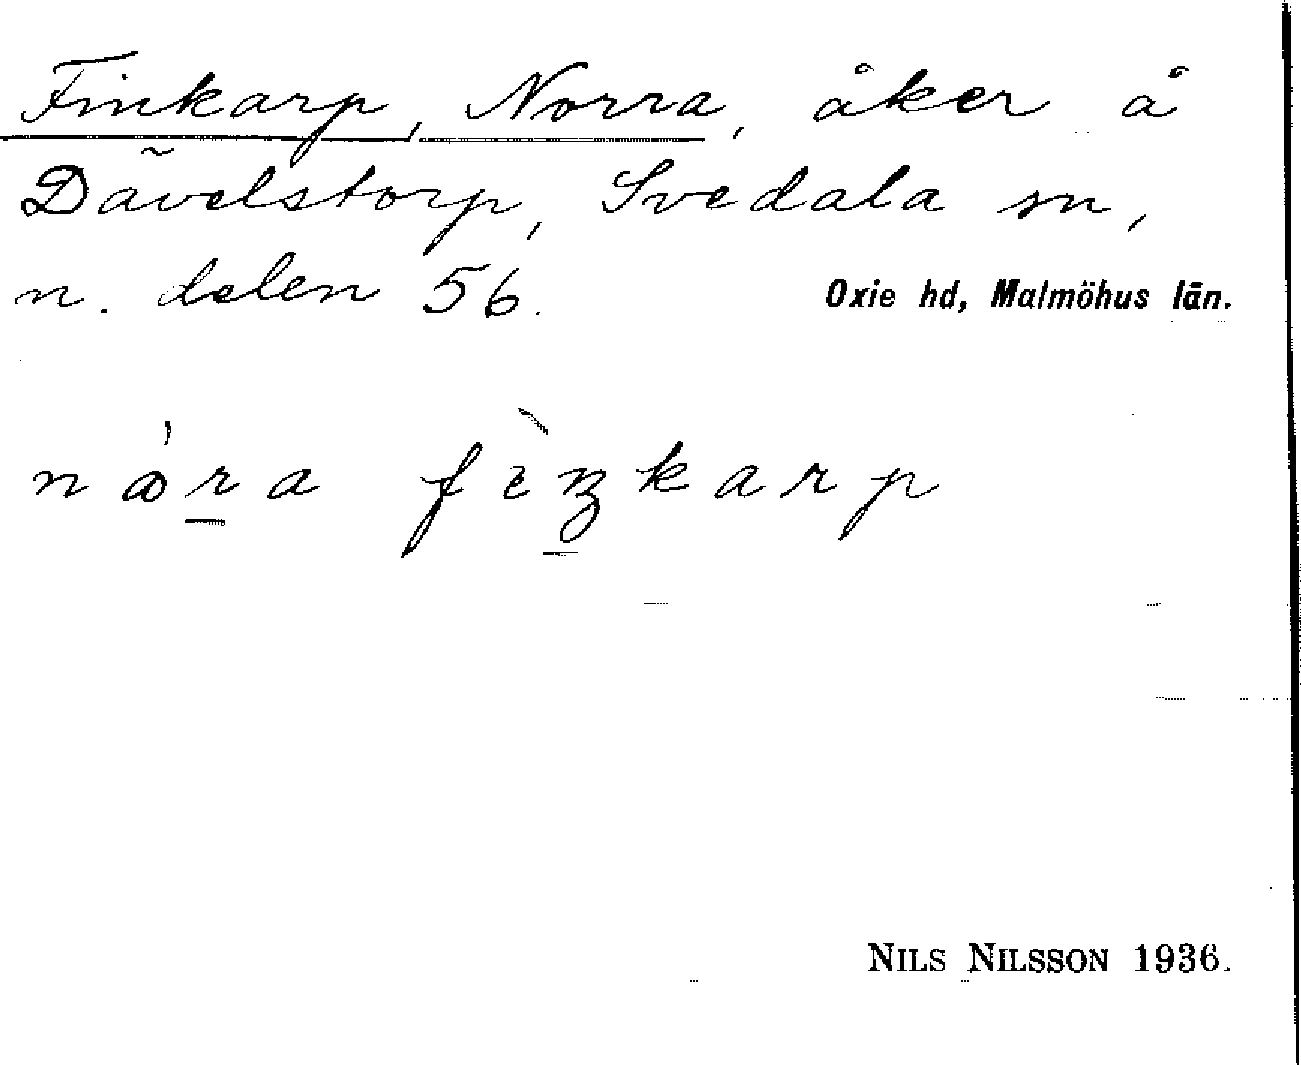 Finkarp, Norra, åker å
Dävelstorp, Svedala sn,
n. delen 56. Oxie hd, Malmöhus län.
fìŋkarp
NILS NILSSON 1936.